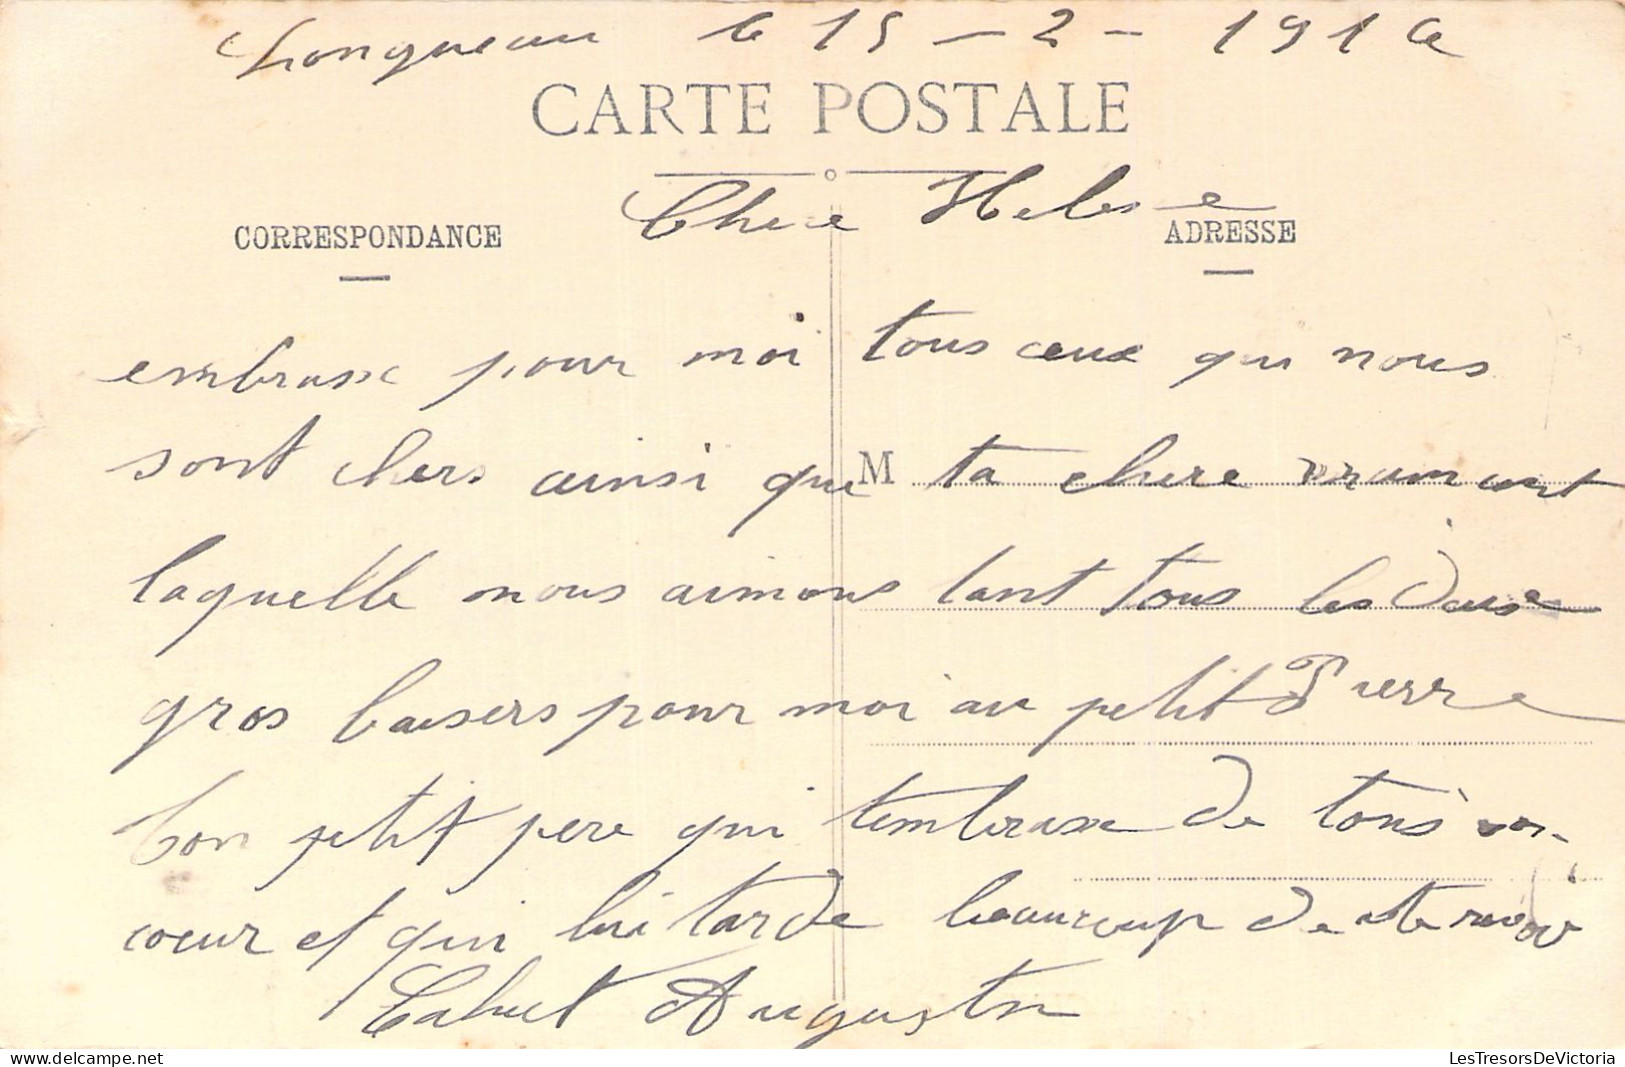 Longueau le 15 - 2 - 191
CARTE POSTALE
Chere Helene
CORRESPONDANCE
ADRESSE
embrasse pour moi tous ceux qui nous
sont chers ainsi que ta chere maman
M
laquelle nous aimons tant tous les deux
gros baisers pour moi au petit Pierre
bon petit pere qui tembrasse de tous
coeur et qui lui tarde beaucoup de te
Cahut Augustin
LesTresorsDeVictoria